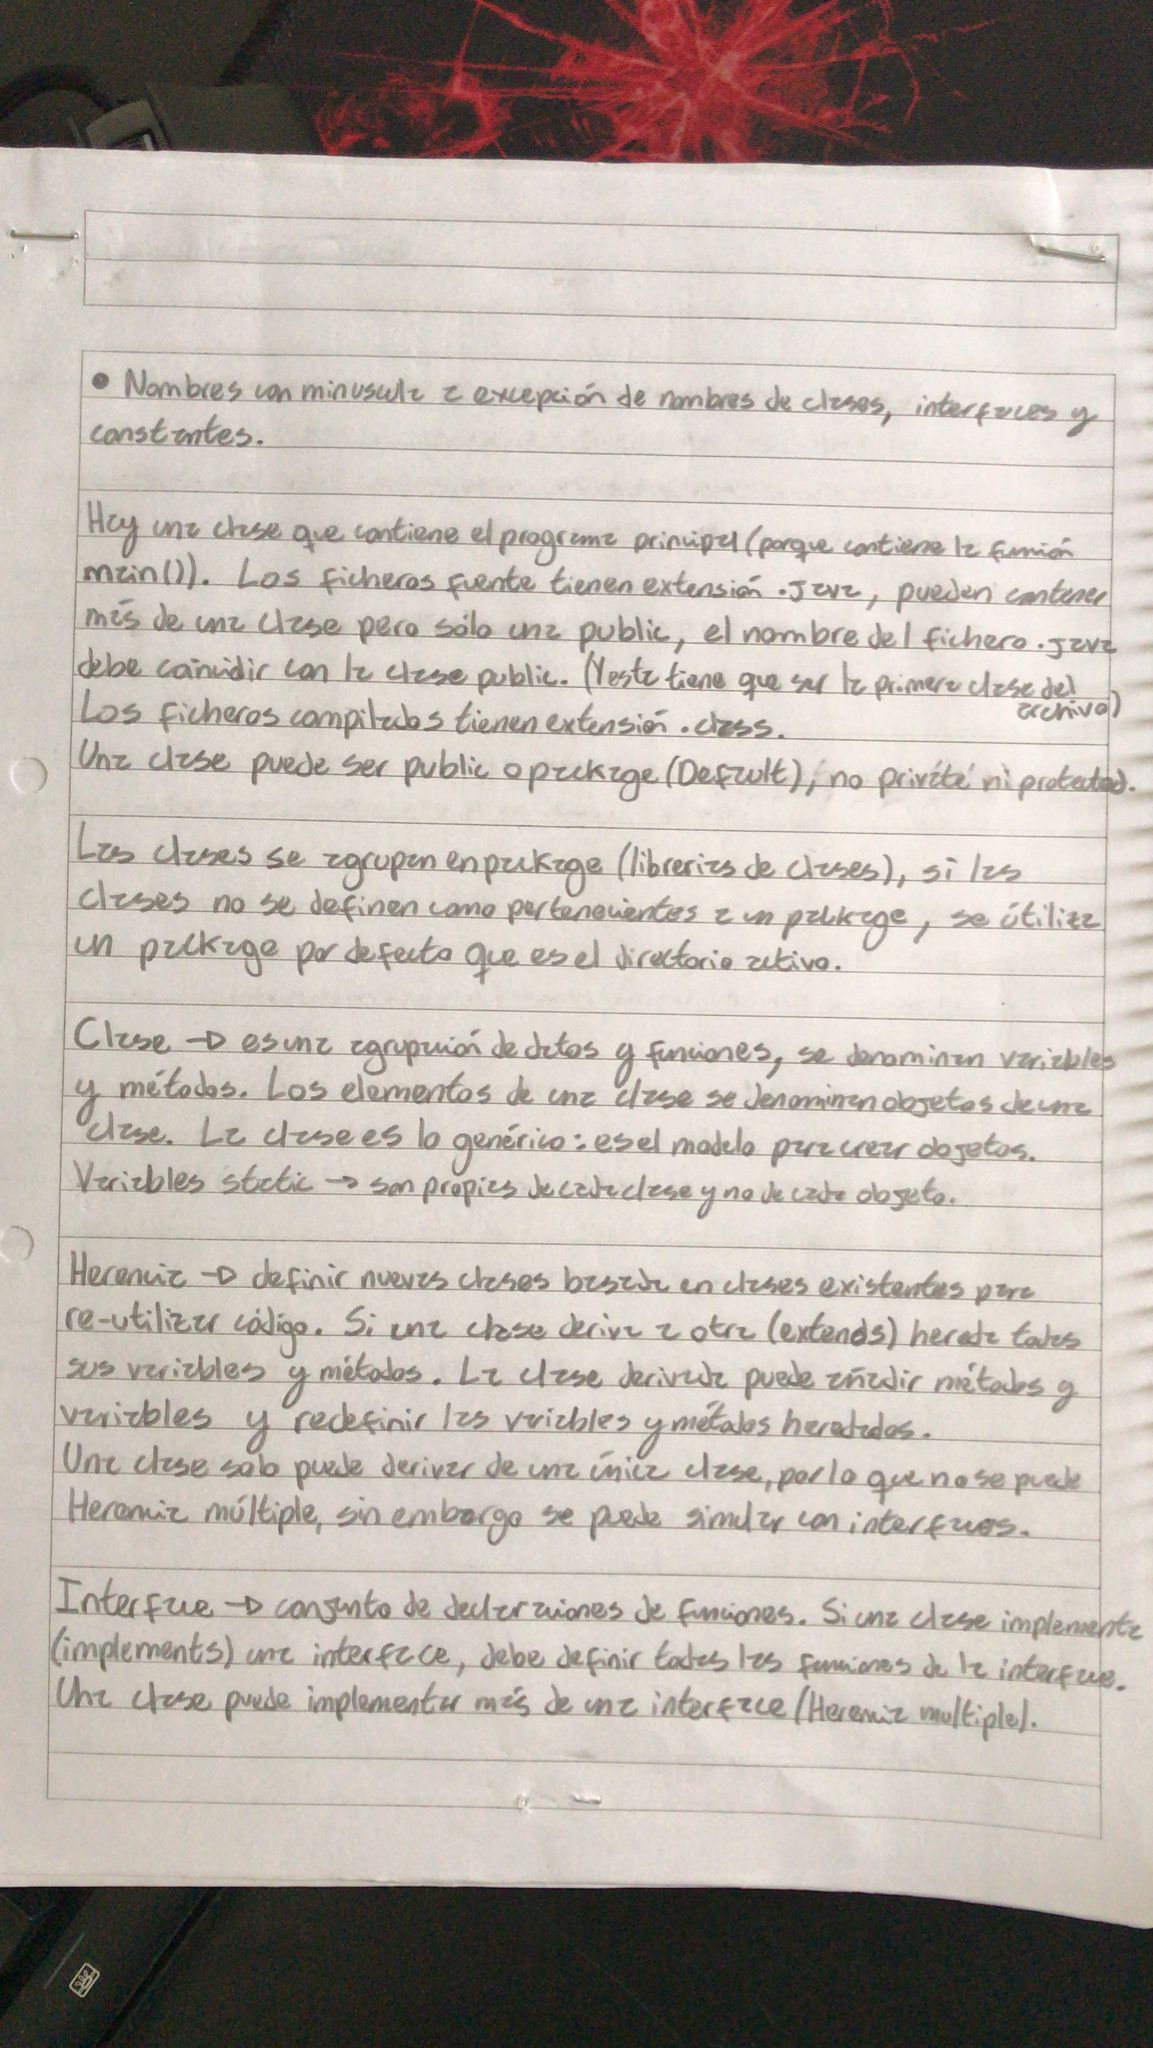 • Nombres con minuscula a excepción de nombres de clases, interfaces y
constantes.
Hay una clase que contiene el programa principal (porque contiene la función
main()). Los ficheros fuente tienen extensión .java, pueden contener
más de una clase pero sólo una public, el nombre del fichero .java
debe coincidir con la clase public. (Y esta tiene que ser la primera clase del
archivo)
Los ficheros compilados tienen extensión .class.
Una clase puede ser public o package (Default), no private ni protected.
Las clases se agrupan en package (librerias de clases), si las
clases no se definen como pertenecientes a un package, se útiliza
un package por defecto que es el directorio activo.
Clase → es una agrupación de datos y funciones, se denominan variables
y métodos. Los elementos de una clase se denominan objetos de una
clase. La clase es lo genérico: es el modelo para crear objetos.
Variables static → son propias de cada clase y no de cada objeto.
Herencia → definir nuevas clases basada en clases existentes para
re-utilizar código. Si una clase deriva a otra (extends) hereda todas
sus variables y métodos. La clase derivada puede añadir métodos y
variables y redefinir las variables y métodos heredados.
Una clase solo puede derivar de una única clase, por lo que no se puede
Herencia múltiple, sin embargo se puede simular con interfaces.
Interface → conjunto de declaraciones de funciones. Si una clase implementa
(implements) una interface, debe definir todas las funciones de la interface.
Una clase puede implementar más de una interface (Herencia multiple).